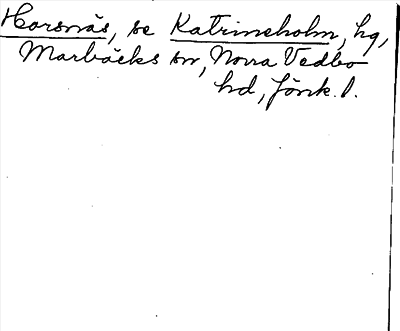 Horsnäs, se Katrineholm, hg,
Marbäcks sn, Norra Vedbo
hd, Jönk. l.